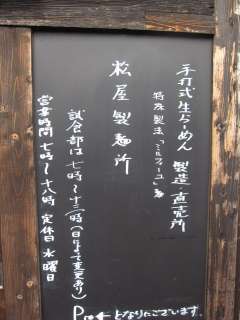 手打式生らーめん 製造直売所
特殊製法「ミルフィーユ」麺
松屋製麺所
試食部は七時～十三時(日によって変更あり)
営業時間 七時～十八時 定休日 水曜日
P ← となりにございます。